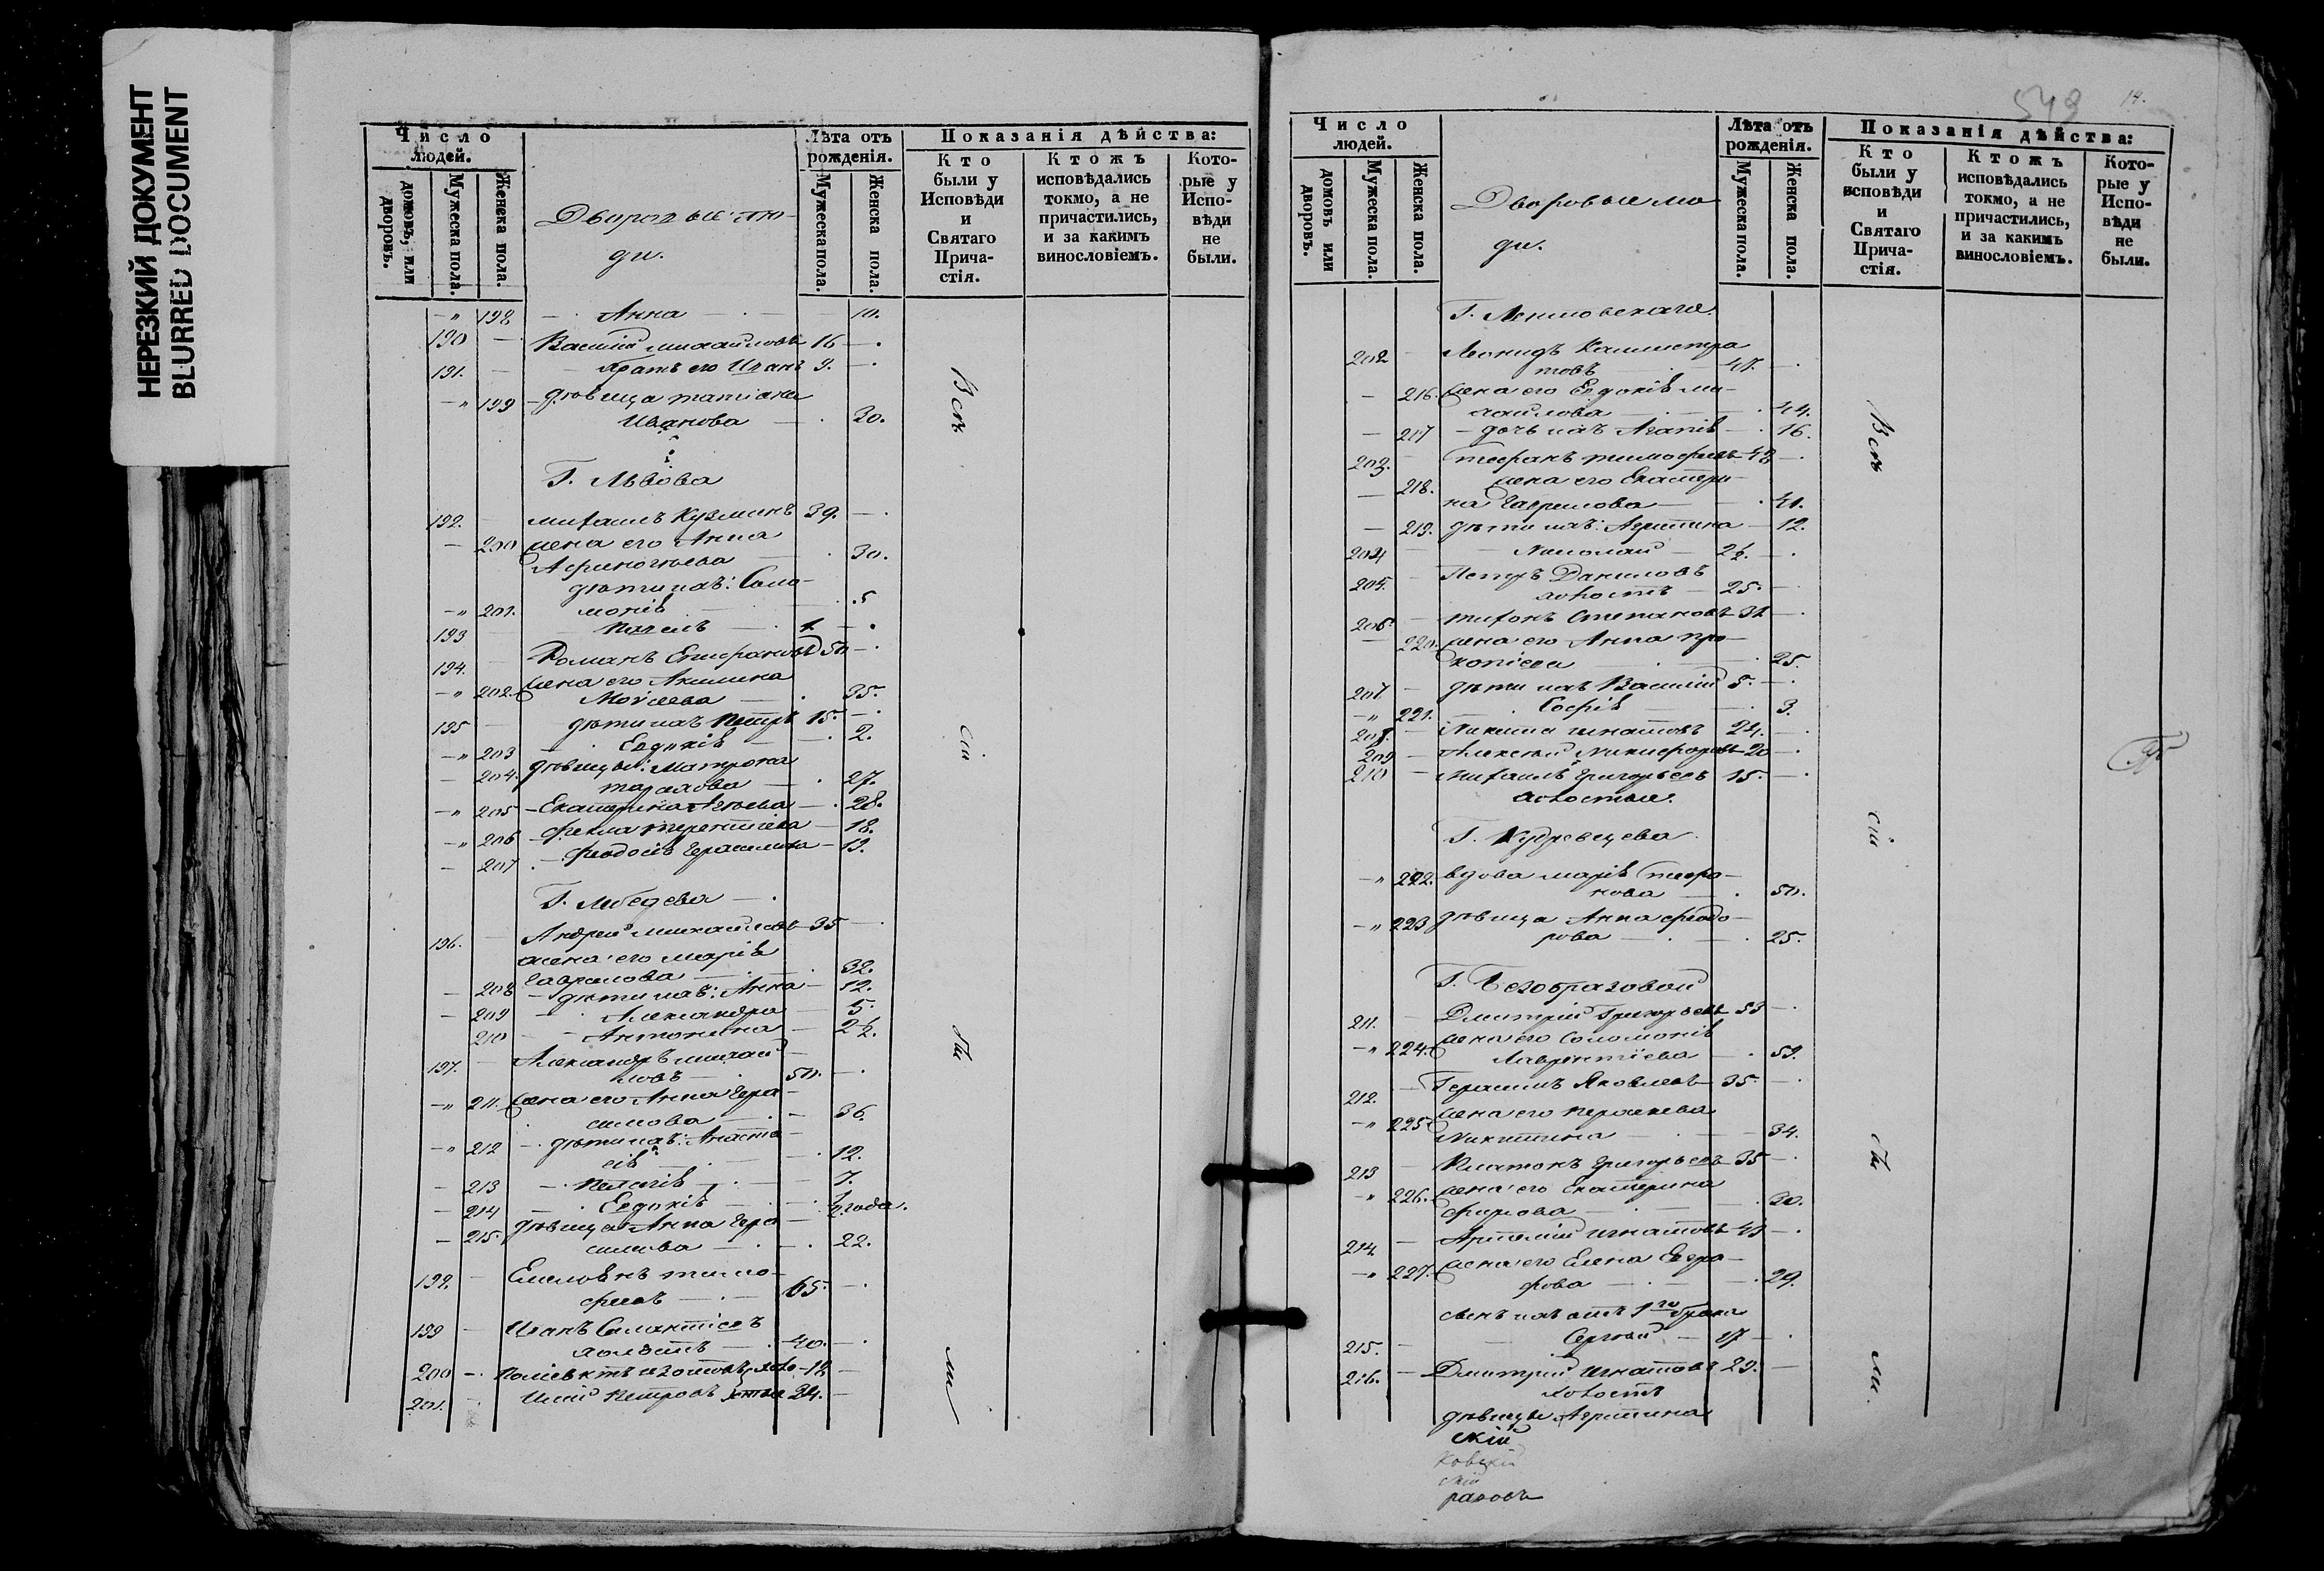 НЕРЕЗКИЙ ДОКУМЕНТ
BLURRED DOCUMENT
Число людей.
домовъ, или дворовъ.
Мужеска пола.
Женска пола.
Дворовые лю-
ди.
Лѣта отъ рожденія.
Мужеска пола.
Женска пола.
Показанія дѣйства:
Кто были у Исповѣди и Святаго Прича-стія.
Ктожъ исповѣдались токмо, а не причастились, и за какимъ винословіемъ.
Кото-рые у Испо-вѣди не были.
" 198 Анна 10.
190 Василій Михайловъ 16
191. братъ его Иванъ 9.
" 199 дѣвица Татіана
Иванова 30.
Г. Львова
192. Михаилъ Кузминъ 39.
200 жена его Анна
30.
дѣти ихъ: Соло-
" 201. монія 5
193 Павелъ 1
194. Романъ 50
" 202 жена его Акилина
Моѵсеева 35.
195 дѣти ихъ Петръ 15.
" 203 Евдокія 2.
204. дѣвицы: Матрона
Тарахова 27.
" 205 Екатерина 28.
" 206 Фекла Терентіева 18.
207 Феодосія Герасимова 19.
Г. Лебедева
196. Андрей Михайловъ 35
жена его Марія
208 Гаврилова 32.
209 дѣти ихъ: Анна 12.
Александра 5.
210 Антонина 2½.
197. Александръ Михай-
ловъ 50.
" 211. жена его Анна Гера-
симова 36.
" 212 дѣти ихъ: Анаста-
сія 12.
213 Пелагія 7.
214 Евдокія ½ года.
215. дѣвица Анна Гера-
симова 22.
198. Тимо-
феевъ 65.
199 Иванъ
холостъ 40.
200 Поліевктъ Изотовъ 18
201. Петровъ 24.
Всѣ
сіи
бы
ли
543
14.
Число людей.
домовъ или дворовъ.
Мужеска пола.
Женска пола.
Дворовые лю
ди.
Лѣта отъ рожденія.
Мужеска пола.
Женска пола.
Показанія дѣйства:
Кто были у исповѣди и Святаго Прича-стія.
Ктожъ исповѣдались токмо, а не причастились, и за какимъ винословіемъ.
Кото-рые у Испо-вѣди не были.
202 Леонидъ Каллистра
товъ 47.
216. жена его Евдокія Ми-
хайлова 44.
217 дочь ихъ Агапія 16.
203. Стефанъ Тимофеевъ 48
218. жена его Екатери-
на Гаврилова 41.
219. дѣти ихъ: Агрипина 12.
204 Николай 2½.
205. Петръ Даниловъ
холостъ 25.
206. Тихонъ Степановъ 31
220. жена его Анна Про-
копіева 25.
207. дѣти ихъ Василій 5.
" 221. Софія 3.
208. Никита Игнатовъ 24.
209 Алексѣй Никифоровъ 20
210 Михаилъ Григорьевъ 15.
холостые.
Г. Кудревцева
" 222. вдова Марія Стефа-
нова 50.
" 223 дѣвица Анна Феодо-
рова 25.
Г. Безобразовой
211. Дмитрій Григорьевъ 53
" 224. жена его Соломонія
Лаврентіева 59.
212. Герасимъ Яковлевъ 35.
" 225 жена его Параскева
Никитина 34.
213 Платонъ Григорьевъ 35
" 226. жена его Екатерина
Фирсова 30.
214 Артемій Игнатовъ 43
" 227. жена его Елена Евгра-
фова 29.
сынъ ихъ отъ 1го брака
215. Сергѣй 17
216. Дмитрій Игнатовъ 29.
холостъ
дѣвицы Агрипина
Всѣ
сіи
бы
ли.
скій
скій